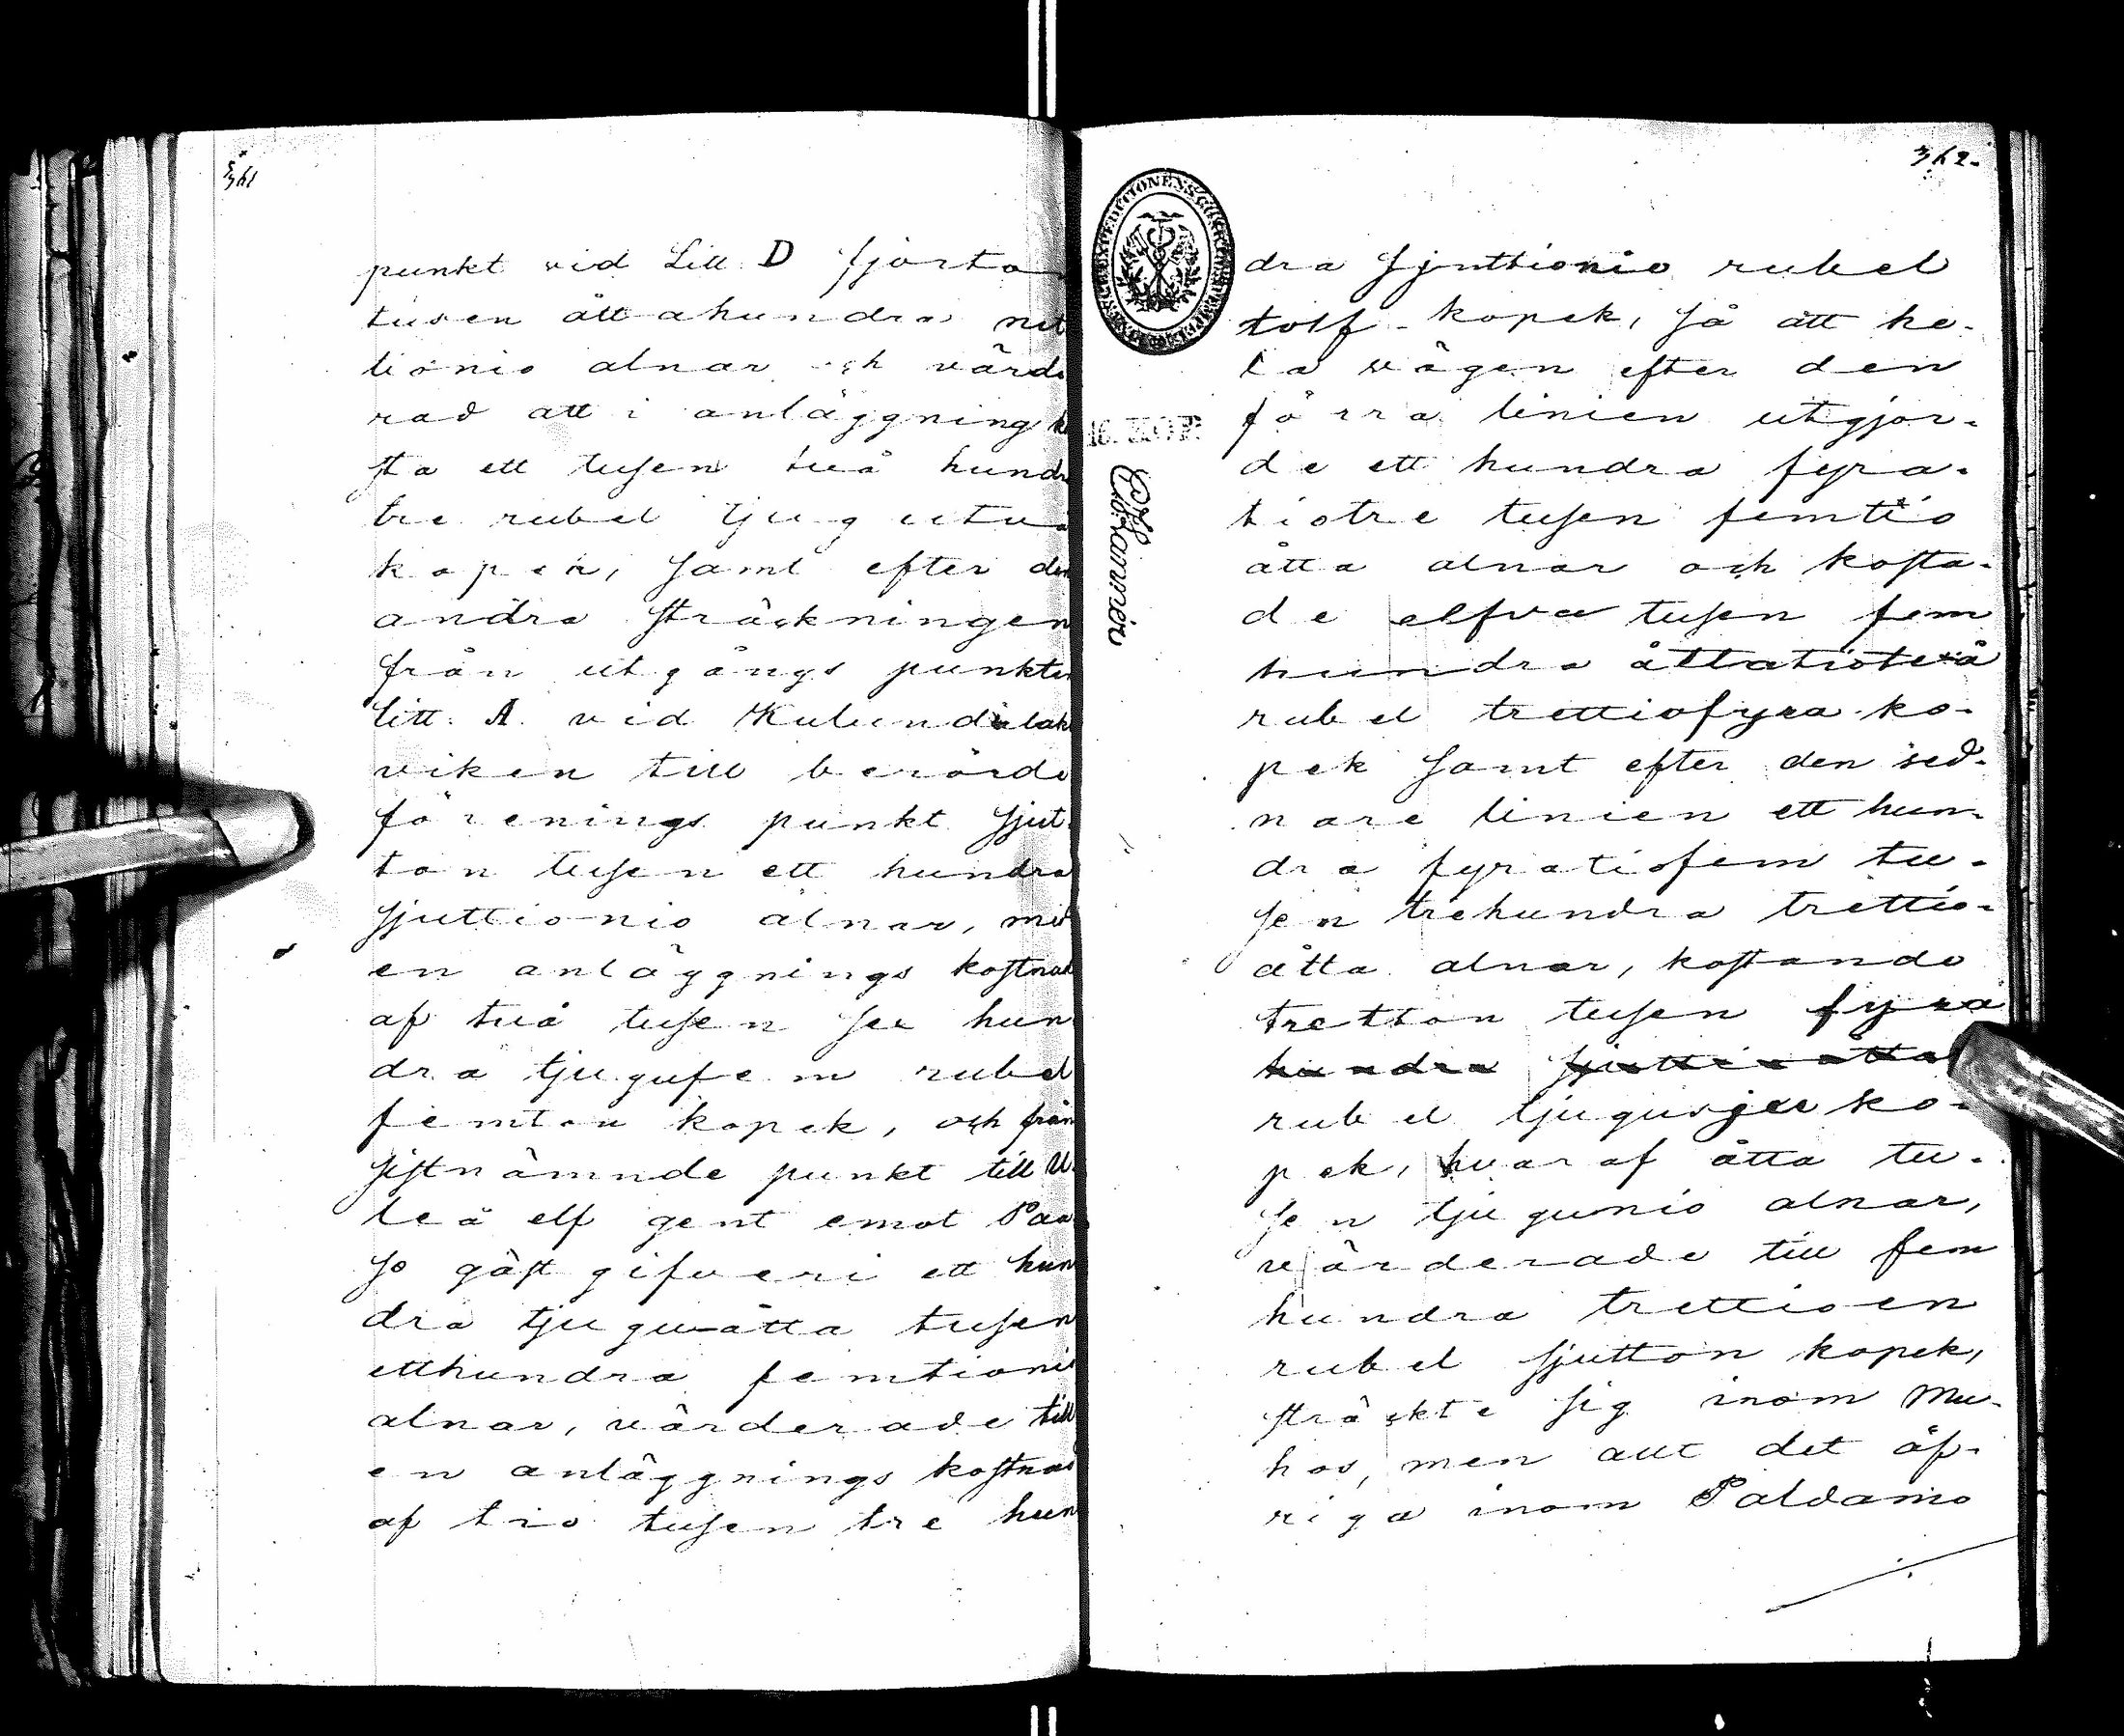 361
punkt vid Litt. D fjorto
tusen åttahundra nit
tionio alnar och värde
rad att i anläggning ko
sta ett tusen två hundra
tre rubel tjugutvå
kopek, samt efter den
andra sträckningen
från utgångs punkten
litt. A. vid Kulundalak
viken till berörde
förenings punkt sjut
ton tusen ett hundra
sjuttionio alnar, med
en anläggnings kostnad
af två tusen sex hun
dra tjugufem rubel
femton kopek, och från
sistnämnde punkt till U
leå elf gent emot Paa
so gästgifveri ett hun
dra tjuguåtta tusen
etthundra femtionio
alnar, värderade till
en anläggnings kostnad
af tio tusen tre hun
362.
16. KOP.
dra sjuttionio rubel
tolf kopek, så att he-
la vägen efter den
förra linien utgjor-
de ett hundra fyra-
tiotre tusen femtio
åtta alnar och kosta-
de elfva tusen fem
hundra åttatiotvå
rubel trettiofyra ko-
pek samt efter den sed-
nare linien ett hun-
dra fyratiofem tu-
sen trehundra trettio-
åtta alnar, kostande
tretton tusen fyra
hundra sjuttioåtta
rubel tjugusjex ko-
pek, hvaraf åtta tu-
sen tjugunio alnar,
värderade till fem
hundra trettioen
rubel sjutton kopek,
sträckte sig inom Mu-
hos, men allt det öf-
riga inom Paldamo